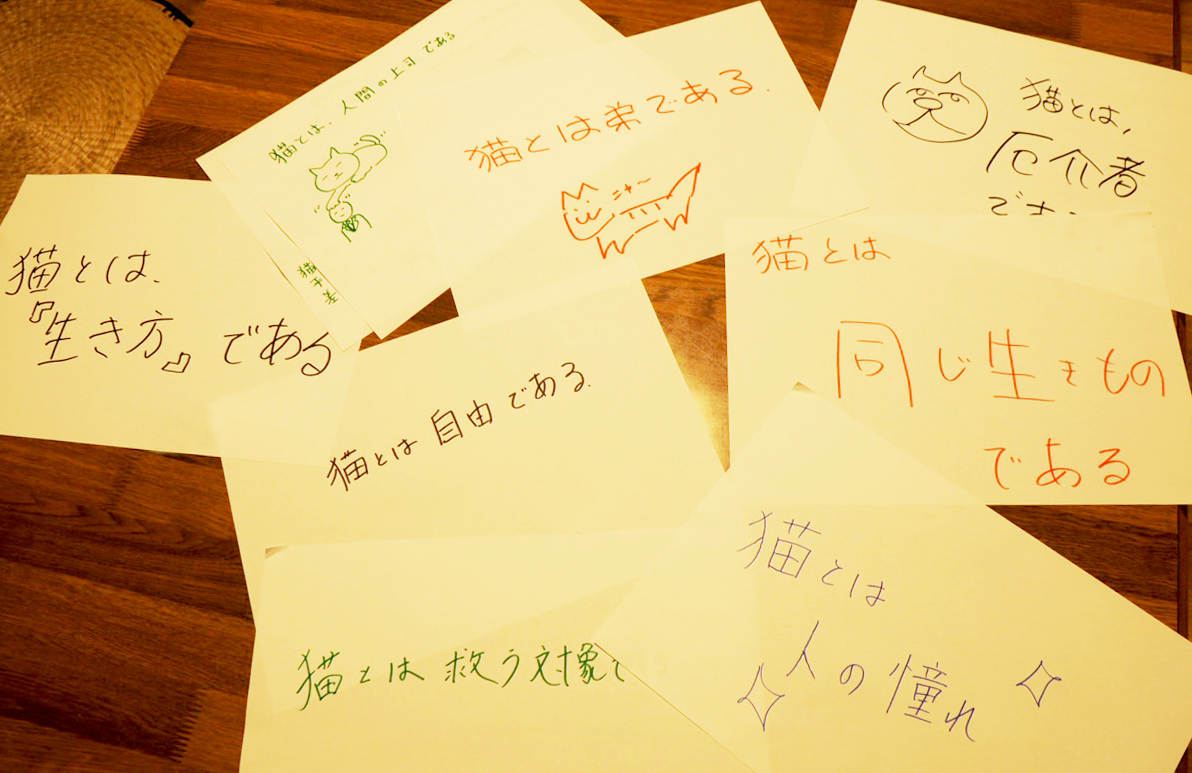 猫とは、人間の上司である
猫とは弟である.
ニャ〜
猫とは,
厄介者
です.
猫とは、
『生き方』である
猫とは
同じ生きもの
である
猫とは自由である.
猫とは救う対象で
猫とは
人の憧れ